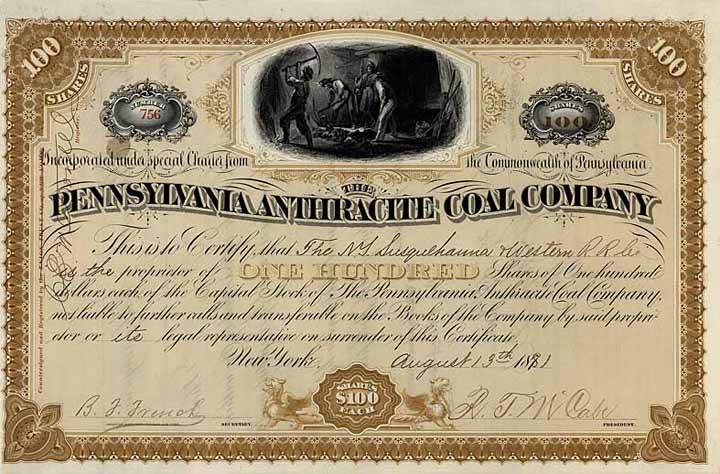 100 SHARES
100 SHARES
NUMBER
756
SHARES
100
Incorporated under Special Charter from the Commonwealth of Pennsylvania
THE
PENNSYLVANIA ANTHRACITE COAL COMPANY
This is to Certify, that The N.Y. Susquehanna & Western R R Co
is the proprietor of ONE HUNDRED Shares of One hundred
dollars each of the Capital Stock of The Pennsylvania Anthracite Coal Company,
not liable to further calls and transferable on the Books of the Company by said propri-
etor or its legal representative on surrender of this Certificate.
New York. August 13th 1891
SHARES
$100
EACH
B. F. French
SECRETARY.
R. T. McCabe
PRESIDENT.
Countersigned and Registered by the
100
100